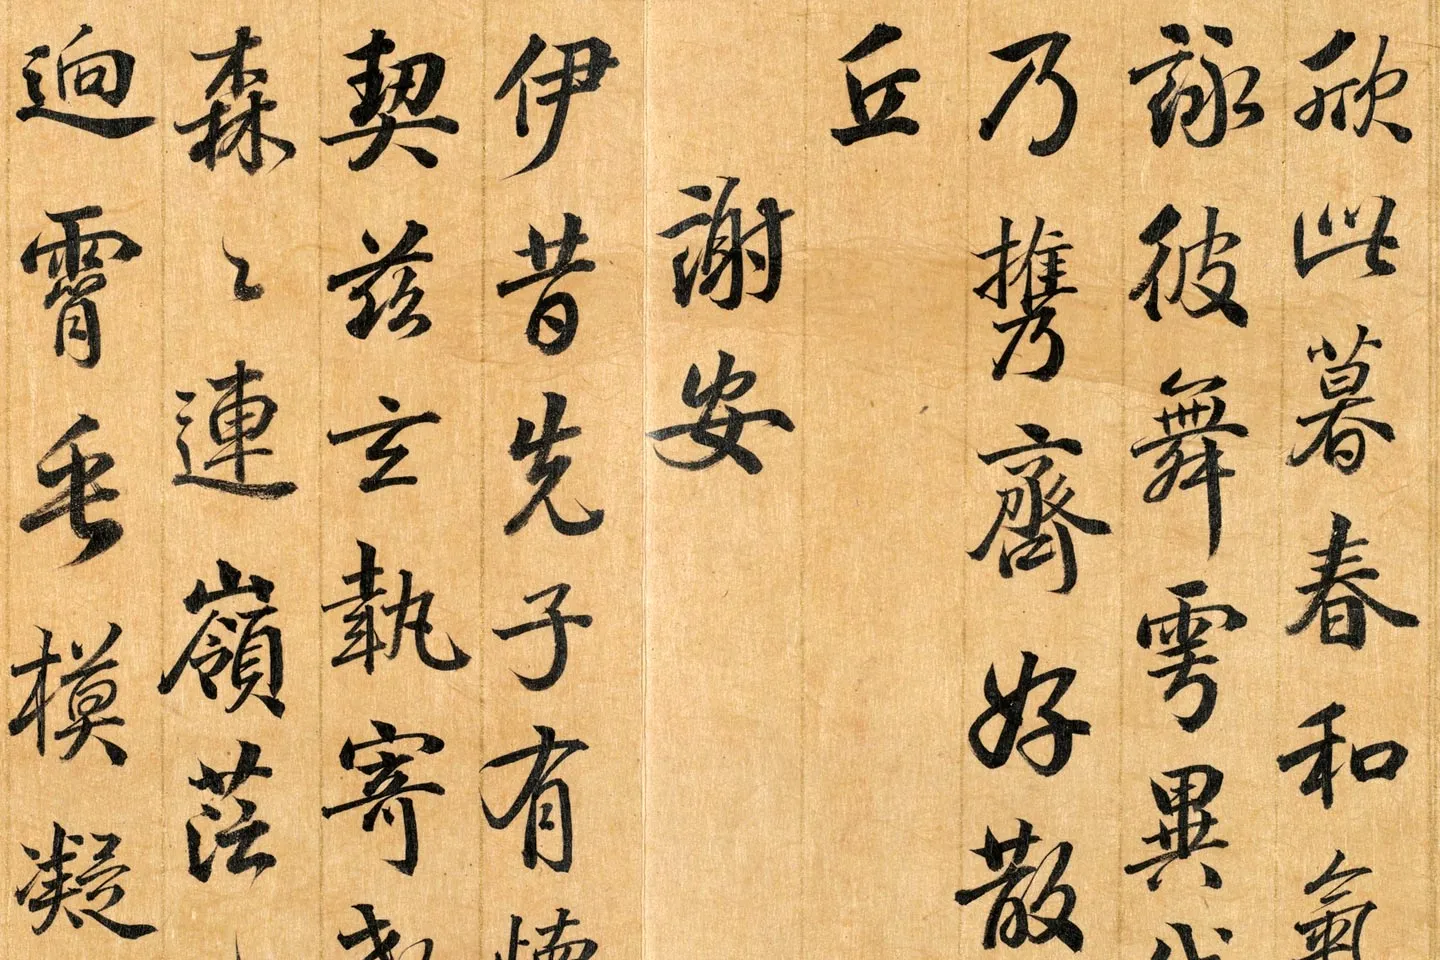 欣此暮春和氣
詠彼舞雩異代
乃攜齊好散
丘
謝安
伊昔先子有懷
契茲玄執寄
森〻連嶺茫
迥霄垂模凝